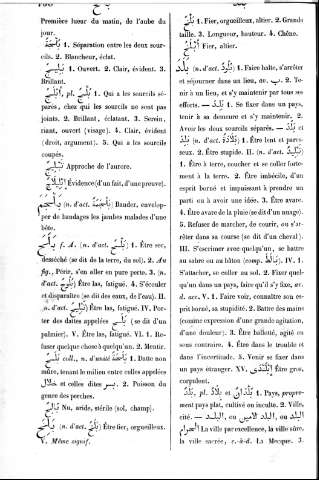 Première lueur du matin, de l'aube du
jour.
بَلْجَةٌ 1. Séparation entre les deux sour-
cils. 2. Blancheur, éclat.
بَلِيجٌ 1. Ouvert. 2. Clair, évident. 3.
Brillant.
أَبْلَجُ, pl. بُلْجٌ 1. Qui a les sourcils sé-
parés, chez qui les sourcils ne sont pas
joints. 2. Brillant, éclatant. 3. Serein,
riant, ouvert (visage). 4. Clair, évident
(droit, argument). 5. Qui a les sourcils
coupés.
Approche de l'aurore.
Évidence (d'un fait, d'une preuve).
(n. d'act. بَلْحَمَةٌ) Bander, envelop-
per de bandages les jambes malades d'une
bête.
بَلَحَ f. A. (n. d'act. بُلُوحٌ) 1. Être sec,
desséché (se dit de la terre, du sol). 2. Au
fig., Périr, s'en aller en pure perte. 3. (n.
d'act. بُلُوحٌ) Être las, fatigué. 4. S'écouler
et disparaître (se dit des eaux, de l'eau). II.
(n. d'act. تَبْلِيحٌ) Être las, fatigué. IV. Por-
ter des dattes appelées بَلَحٌ (se dit d'un
palmier). V. Être las, fatigué. VI. 1. Re-
fuser quelque chose à quelqu'un. 2. Mentir.
بَلَحٌ coll., n. d'unité بَلَحَةٌ 1. Datte non
mûre, tenant le milieu entre celles appelées
خلال et celles dites بسر. 2. Poisson du
genre des perches.
Nu, aride, stérile (sol, champ).
بَلَخَ (n. d'act. بَلْخٌ) Être fier, orgueilleux.
V. Même signif.
بَلْخٌ 1. Fier, orgueilleux, altier. 2. Grande
taille. 3. Longueur, hauteur. 4. Chêne.
Fier, altier.
بَلَدَ (n. d'act. بُلُودٌ) 1. Faire halte, s'arrêter
et séjourner dans un lieu, av. ب. 2. Te-
nir à un lieu, et s'y maintenir par tous ses
efforts. — بَلِدَ 1. Se fixer dans un pays,
tenir à sa demeure et s'y maintenir. 2.
Avoir les deux sourcils séparés. — بَلُدَ
et بَلِدَ (n. d'act. بَلَادَةٌ) 1. Être lent et pares-
seux. 2. Être stupide. II. (n. d'act. تَبْلِيدٌ)
1. Être à terre, coucher et se coller forte-
ment à la terre. 2. Être imbécile, d'un
esprit borné et impuissant à prendre un
parti ou à avoir une idée. 3. Être avare.
4. Être avare de la pluie (se dit d'un nuage).
5. Refuser de marcher, de courir, ou s'ar-
rêter dans sa course (se dit d'un cheval).
III. S'escrimer avec quelqu'un, se battre
au sabre ou au bâton (comp. بَالَطَ). IV. 1.
S'attacher, se coller au sol. 2. Fixer quel-
qu'un dans un pays, faire qu'il s'y fixe, av.
d. acc. V. 1. Faire voir, connaître son es-
prit borné, sa stupidité. 2. Battre des mains
(comme expression d'une grande agitation,
d'une douleur). 3. Être ballotté, agité en
sens contraire. 4. Être dans le trouble et
dans l'incertitude. 5. Venir se fixer dans
un pays étranger. XV. اِبْلَنْدَى Être gros,
corpulent.
بَلَدٌ, pl. بِلَادٌ et بُلْدَانٌ 1. Pays, propre-
ment pays plat, cultivé ou inculte. 2. Ville,
cité. — البلد, ou البلد الامين, ou البلد
الحرام La ville par excellence, la ville sûre,
la ville sacrée, c.-à-d. La Mecque. 3.